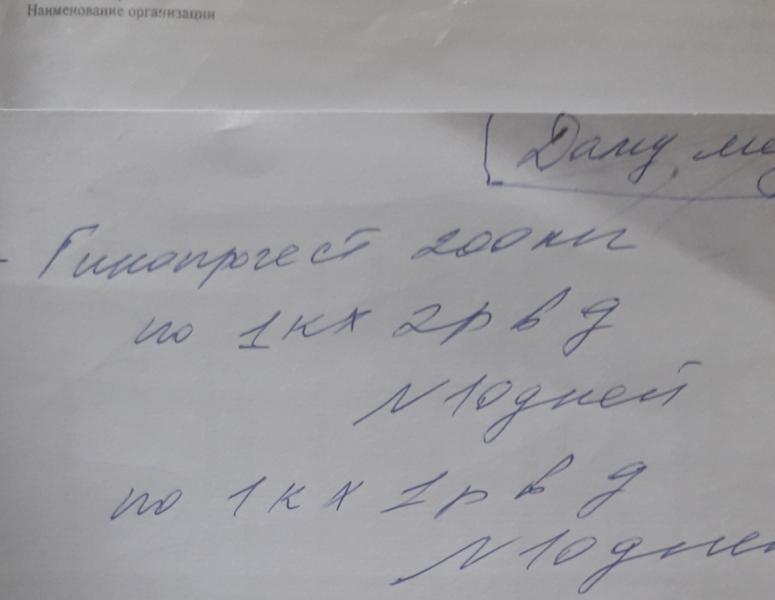 Наименование организации
Даму
- Гинопрогест 200 мг
по 1к х 2р в д
N 10 дней
по 1к х 1р в д
N 10 дне